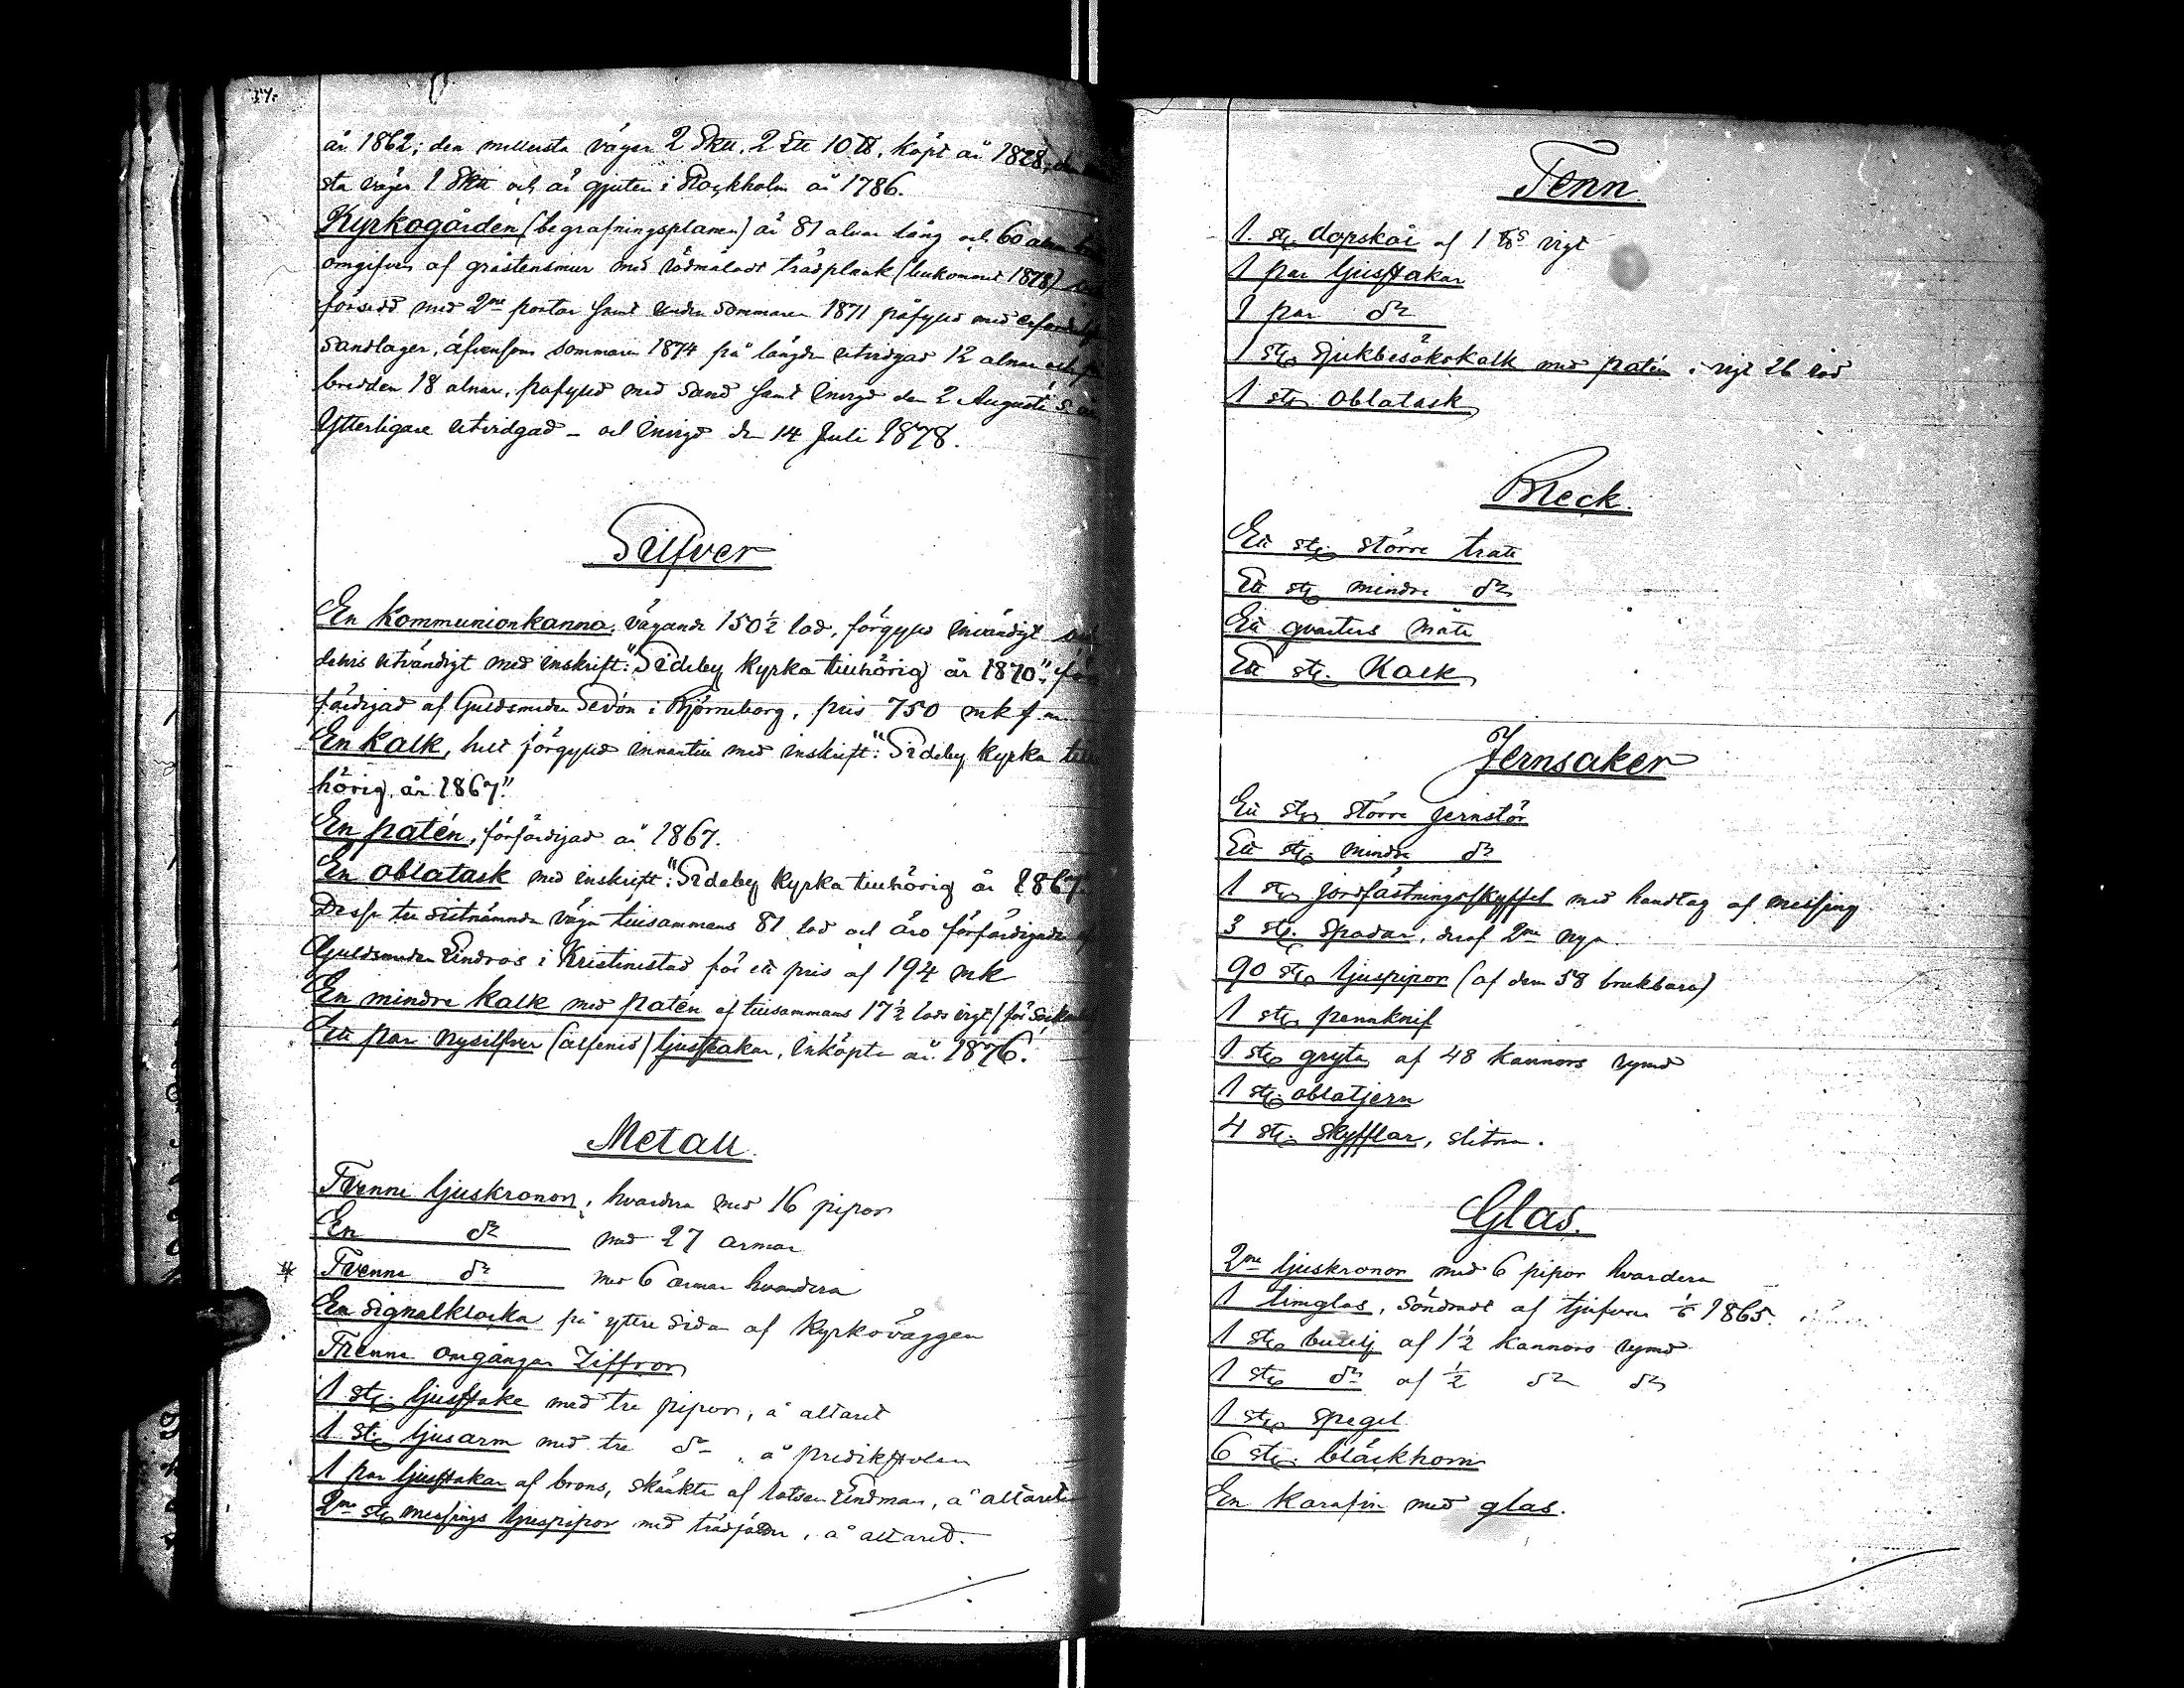 år 1862; den mellersta väger 2 Sk℔. 2 L℔ 10 ℔. köpt år 1828; den
sta väger 1 Sk℔ och är gjuten i Stockholm år 1786.
Kyrkogården (begrafningsplanen) är 81 alnar lång och 60 alnar
omgifven af gråstensmur med rödmåladt trädplank
försedd med 2ne portar samt under Sommaren 1871 påfylld med
Sandlager, äfvensom sommaren 1874 på längden utvidgad 12 alnar och på
bredden 18 alnar, påfylld med Sand samt invigd den 2 Augusti s. år.
Ytterligare utvidgad - och invigd den 14 Juli 1878.
Silfver
En Kommunionkanna, vägande 150½ lod, förgylld invändigt
delvis utvändigt med inskrift: "Sideby Kyrka tillhörig år 1870",
färdigad af Guldsmeden Sedon i Björneborg, pris 750 mk f.m.
En Kalk, helt förgylld innantill med inskrift: "Sideby Kyrka till
hörig år 1867."
En patén, förfärdigad år 1867.
En oblatask med inskrift: "Sideby Kyrka tillhörig år 1867.
Dessa tre sistnämnda väga tillsammans 81 lod och äro förfärdigade af
Guldsmeden Lindroos i Kristinestad för ett pris af 194 mk
En mindre kalk med patén af tillsammans 17½ lods vigt
Ett par nysilfver (alfenid) ljusstakar, inköpta år 1876.
Metall
Tvenne ljuskronor, hvardera med 16 pipor
En do med 27 armar
* Tvenne do med 6 armar hvardera
En signalklocka på yttre sidan af Kyrkoväggen
Trenne omgångar Ziffror
1 st. ljusstake med tre pipor, å altaret
1 st. ljusarm med tre do, å predikstolen
1 par ljusstakar af brons, skänkta af lotsen Lindman, å altaret
2ne st. messings ljuspipor med trädfötter, å altaret.
Tenn
1 st. dopskål af 1 ℔s vigt
1 par ljusstakar
1 par do
1 st. sjukbesökskalk med patén i vigt 26 lod
1 st. oblatask
Bleck
En st. större tratt
En st. mindre do
Ett qvarters mått
En st. Kalk
Jernsaker
En st. större jernstör
En st. mindre do
1 st. jordfästningsskyffel med handtag af messing
3 st. Spadar, deraf 2ne nya.
90 st. ljuspipor (af dem 58 brukbara)
1 st. pennknif
1 st. gryta af 48 kannors rymd
1 st. oblatjern
4 st. skyfflar, slitna.
Glas.
2ne ljuskronor med 6 pipor hvardera
1 timglas, söndradt af tjufvar 1865.
1 st. butelj af 1½ kannors rymd
1 st. do af ½ do do
1 st. spegel
6 st. bläckhorn
En karafin med glas.